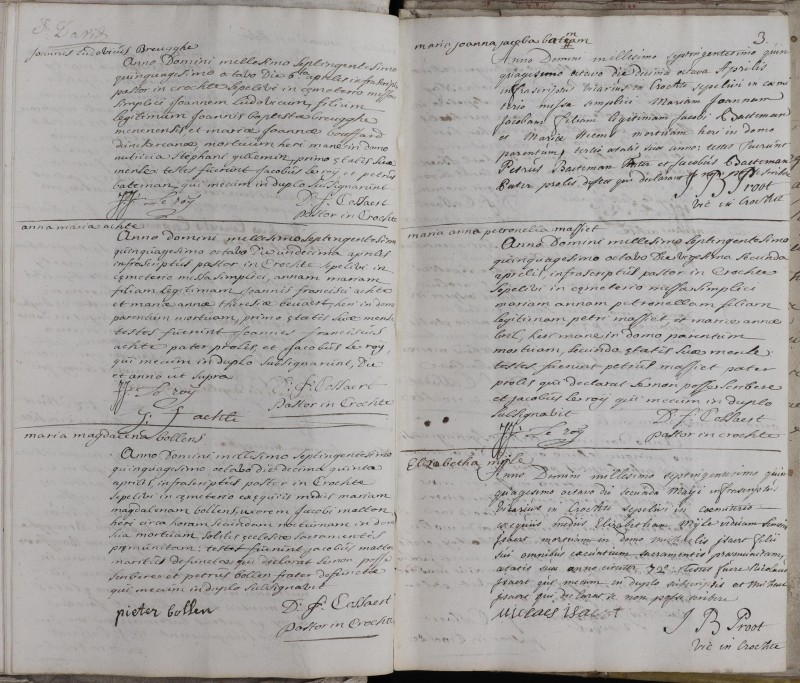 joannes Ludovicus Breugghe
Anno Domini millesimo Septingentesimo
quinquagesimo octavo Die 6ta aprilis infrascriptus
pastor in crochte Sepelivi in cæmeterio missa
Simplici Joannem Ludovicum, filium
legitimum joannis baptistæ breugghe
menenensis, et mariæ joannæ bouffard
duinkercanæ mortuum heri mane in domo
nutricia Stephani guilemin, primo ætatis suæ
mense testes fuerunt jacobus le roy et petrus
bateman, qui mecum in duplo subsignarunt
le roy D. f. Cossaert
Pastor in Crochte
anna maria achte
Anno domini millesimo Septingentesimo
quinquagesimo octavo die undecima aprilis
infrascriptus pastor in Crochte Sepelivi in
cæmeterio missa Simplici, annam mariam
filiam legitimam joannis francisci achte
et mariæ annæ theresiæ heri in domo
parentum mortuam, primo ætatis suæ mense
testes fuerunt joannes franciscus
achte pater prolis, et jacobus le roy,
qui mecum in duplo subsignarunt, Die
et anno ut supra
le roy D. f. Cossaert
Pastor in Crochte
J. f achte
maria magdalena bollens
Anno Domini millesimo Septingentesimo
quinquagesimo octavo die decima quinta
aprilis, infrascriptus pastor in Crochte
Sepelivi in cæmeterio exequiis mediis mariam
magdalenam bollens, uxorem jacobi
heri circa horam nocturnam in domo
sua mortuam, solitis ecclesiæ Sacramentis
præmunitam; testes fuerunt, jacobus
maritus defunctæ qui declarat se non posse
scribere et petrus bollen frater defunctæ
qui mecum in duplo subsignavit
pieter bollen D. f. Cossaert
Pastor in Crochte
3.
maria joanna jacoba bateman
Anno Domini millesimo septingentesimo quin
quagesimo octavo die decima octava Aprilis
infrascriptus vicarius in Crochte sepelivi in cæme
terio missa simplici Mariam Joannam
Jacobam filiam legitimam Jacobi Baeteman
et Mariæ mortuam heri in domo
parentum, tertio ætatis suæ anno: testes fuerunt
Petrus Baeteman et Jacobus Baeteman
pater prolis qui declarant se non posse scribere
J B Proot
vic in Crochte
maria anna petronella massiet
Anno Domini millesimo Septingentesimo
quinquagesimo octavo Die vigesima Secunda
aprilis, infrascriptus pastor in Crochte
Sepelivi in cæmeterio missa Simplici
mariam annam petronellam filiam
legitimam petri massiet, et mariæ annæ
heri mane in domo parentum
mortuam, secundo ætatis suæ mense.
testes fuerunt petrus massiet pater
prolis qui declarat se non posse scribere
et jacobus le roy qui mecum in duplo
subsignavit D. f. Cossaert
le roy Pastor in crochte
Elizabetha mijle
Anno Domini millesimo septingentesimo quin
quagesimo octavo die secunda Maije infrascriptus
vicarius in Crochte sepelivi in cæmeterio
exequiis mediis Elizabetham Mijle viduam
Isaert, mortuam in domo Michaelis Isaert filii
sui omnibus Sacramentis præmunitam,
ætatis suæ anno circiter 72: testes fuere Nicolaus
Isaert qui mecum in duplo subscripsit et Michael
Isaert qui declarat se non posse scribere
Niclaes Isaert
J B Proot
vic in Crochte